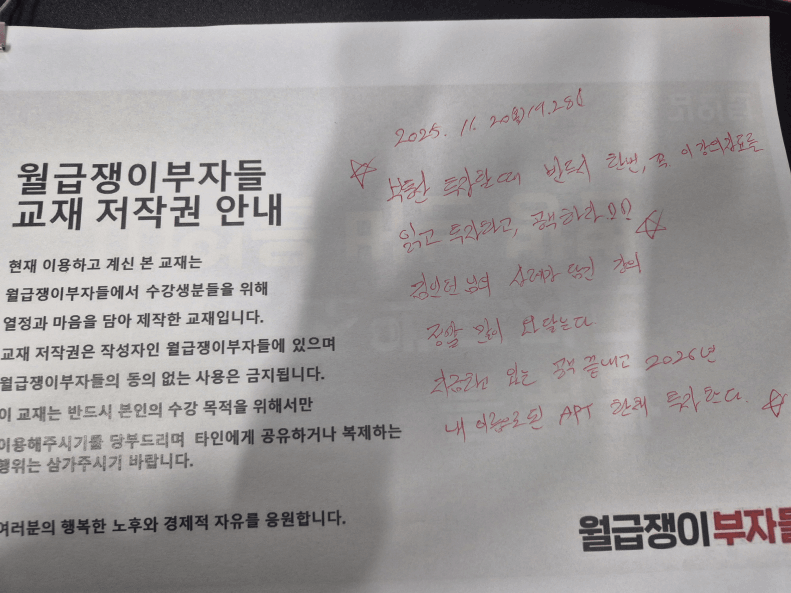 월급쟁이부자들
교재 저작권 안내
현재 이용하고 계신 본 교재는
월급쟁이부자들에서 수강생분들을 위해
열정과 마음을 담아 제작한 교재입니다.
교재 저작권은 작성자인 월급쟁이부자들에 있으며
월급쟁이부자들의 동의 없는 사용은 금지됩니다.
이 교재는 반드시 본인의 수강 목적을 위해서만
이용해주시기를 당부드리며 타인에게 공유하거나 복제하는
행위는 삼가주시기 바랍니다.
여러분의 행복한 노후와 경제적 자유를 응원합니다.
2025. 11. 20
☆ 부동산 투자할때 반드시 한번, 꼭 이 강의
읽고 투자하고, 공책하라 ☆
님의 담긴 강의
정말 많이
지금하고 있는 공책 끝내고 2026년
내 이름으로된 APT 한채 투자한다. ☆
월급쟁이부자들